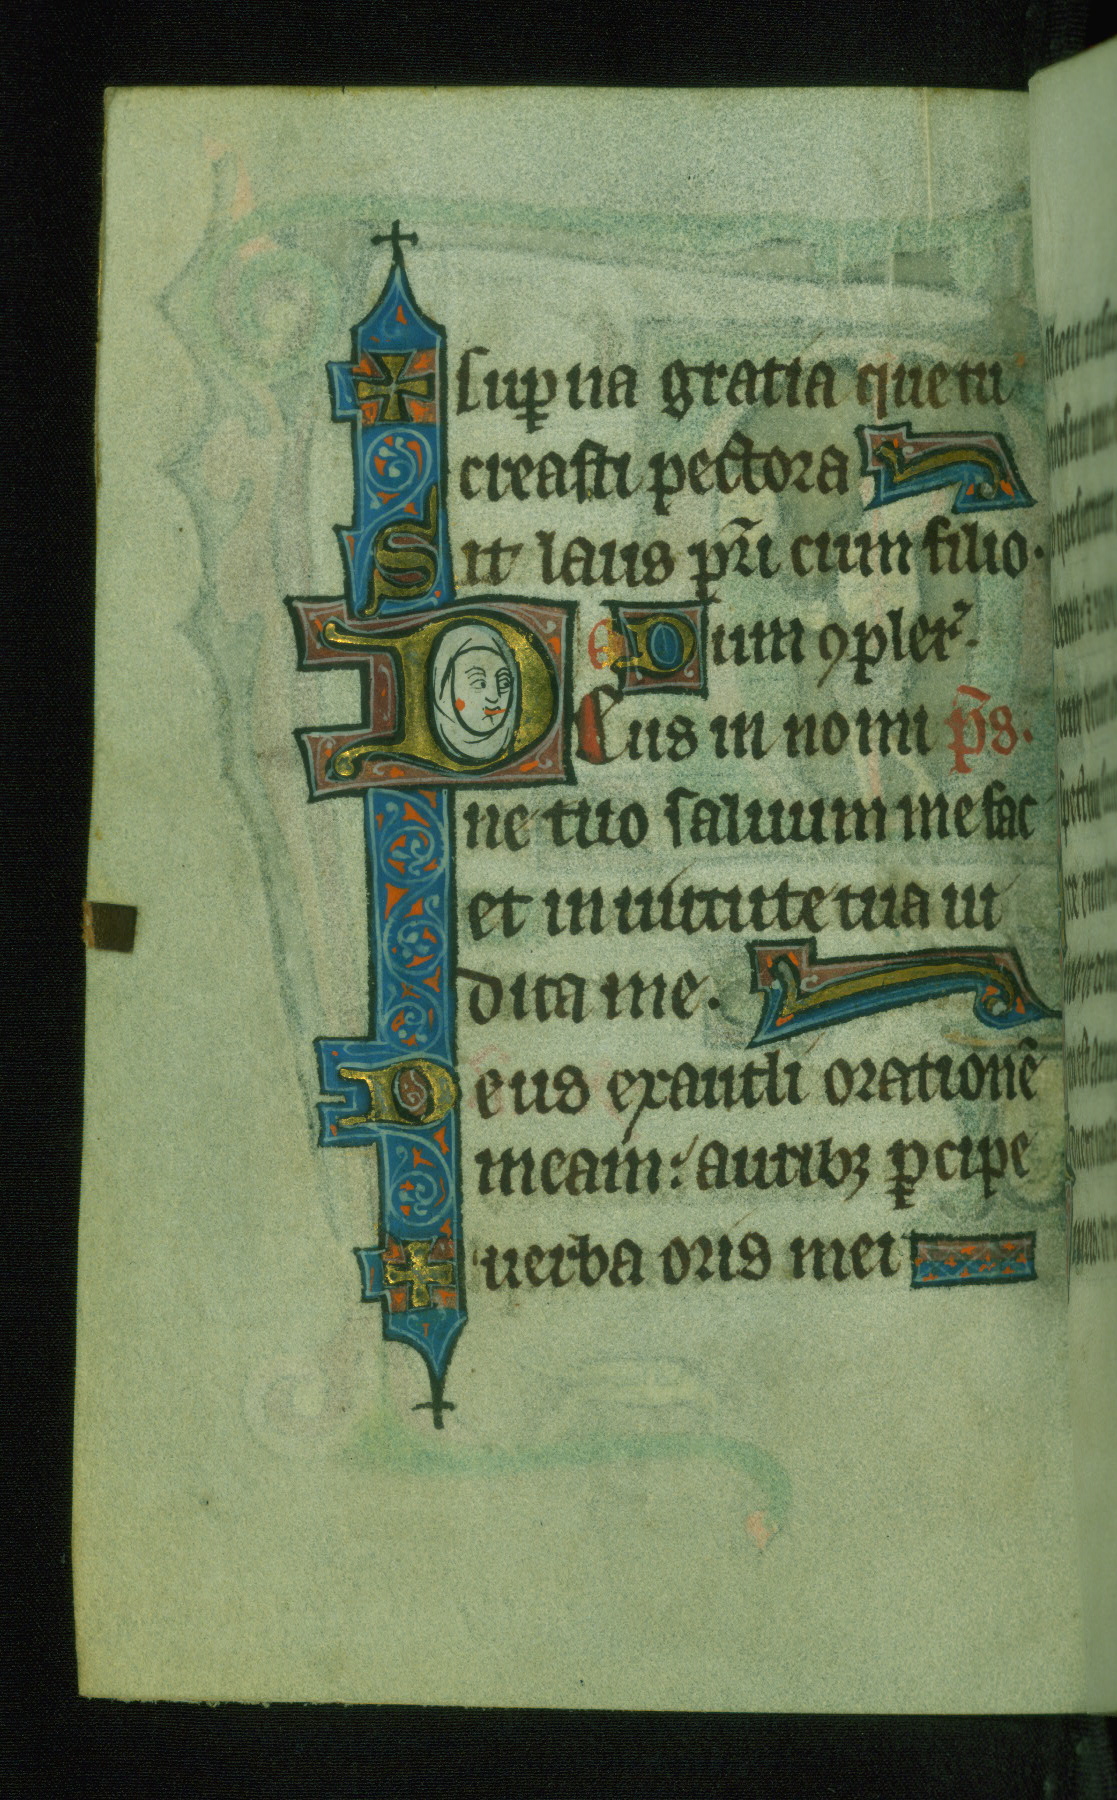 sup̲na gratia que tu
creasti pectora
Sit laus pr̃i cum filio·
Dum ꝯpler᷑·
DEus in nomi p̃s·
ne tuo saluum me fac
et in uirtute tua iu
dica me·
Deus exaudi orationẽ
meam: auribꝫ p̲cipe
uerba oris mei